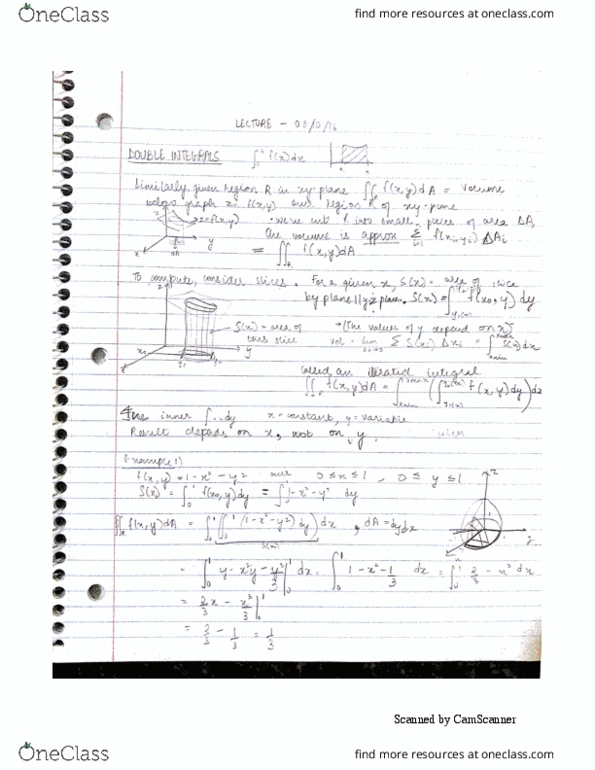 OneClass
find more resources at oneclass.com
LECTURE -
DOUBLE INTEGRALS ∫ f(x)dx
Similarly given region R in xy-plane ∬ f(x,y)dA = volume
below graph z = f(x,y) over region R of xy-plane
z=f(x,y) • we've cut R into small pieces of area ΔA
the volume is approx Σ f(xi,yi) ΔAi
x y dA = ∬ f(x,y)dA
To compute, consider slices. For a given x, S(x) = area of slice
by plane || yz plane. S(x) = ∫ f(x0,y) dy
S(x) = area of → (The values of y depend on x)
this slice vol = lim Σ S(xi) Δxi = ∫ S(x) dx
called an iterated integral
∬ f(x,y)dA = ∫ (∫ f(x,y)dy) dx
inner ∫..dy x = constant, y = variable
Result depends on x, not on y.
Example 1)
f(x,y) = 1-x²-y² 0≤x≤1, 0≤y≤1
S(x) = ∫₀¹ f(x0,y)dy = ∫ 1-x²-y² dy
∬ f(x,y)dA = ∫₀¹ (∫₀¹ (1-x²-y²) dy) dx, dA = dydx
S(x)
= ∫₀¹ y - x²y - y³/3 |₀¹ dx = ∫₀¹ 1-x²-1/3 dx = ∫₀¹ 2/3 - x² dx
= 2/3 x - x³/3 |₀¹
= 2/3 - 1/3 = 1/3
Scanned by CamScanner
OneClass
find more resources at oneclass.com